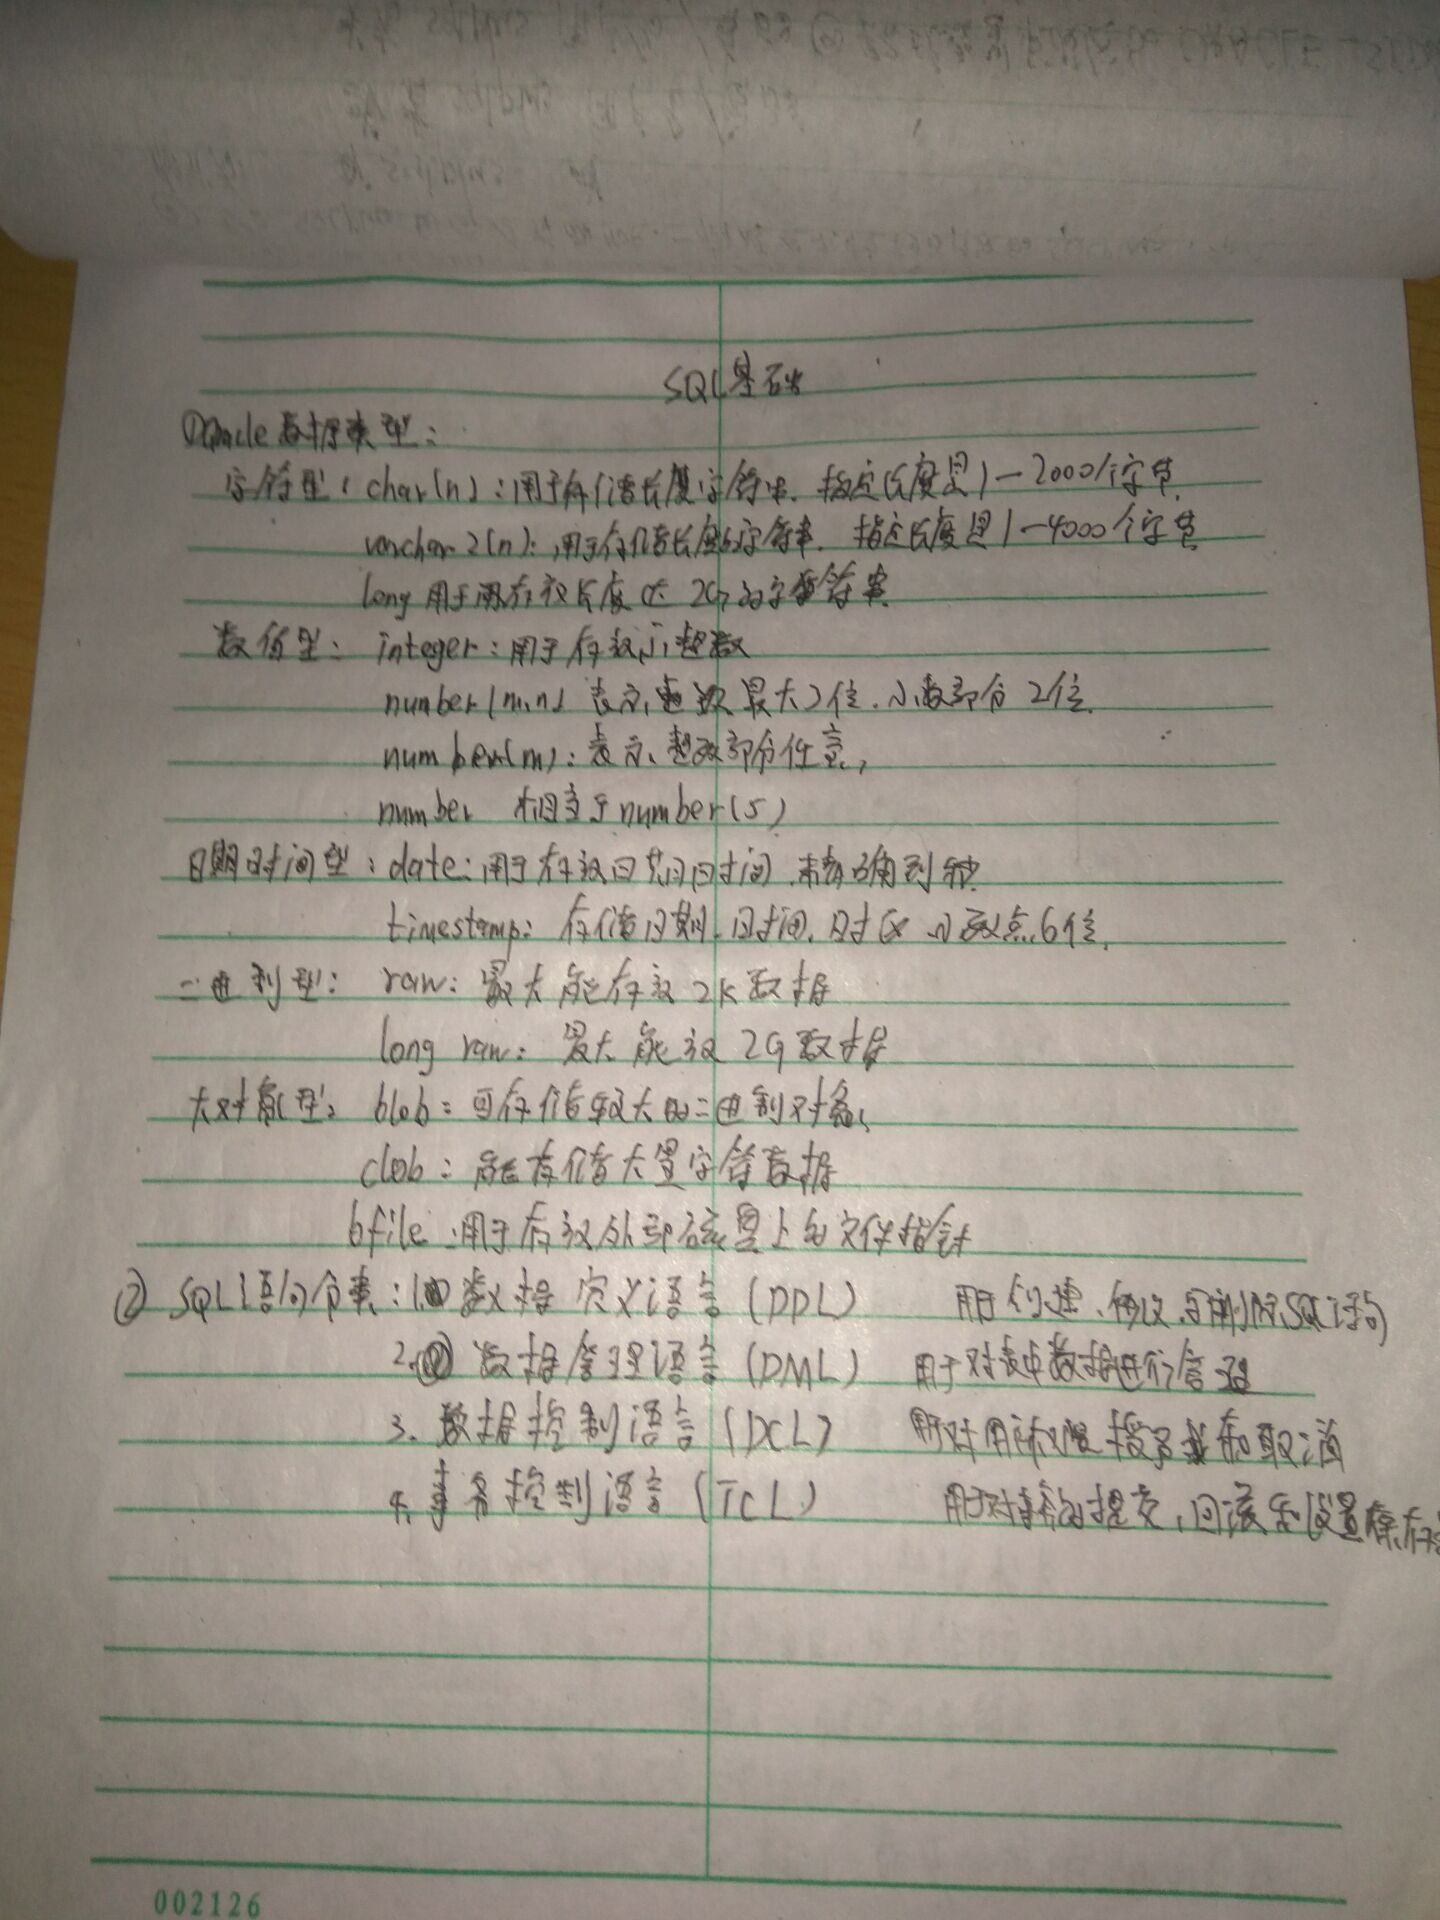 SQL基础
①Oracle数据类型:
字符型: char(n):用于存储长度字符串. 指定长度是1-2000个字节.
varchar2(n): 用于存储长度的字符串. 指定长度是1-4000个字节
long 用于存放长度达2G的字符串
数值型: integer:用于存放小整数
number(m,n) 表示整数最大 位.小数部分2位.
number(m):表示整数部分任意,
number 相当于number(5)
日期时间型:date:用于存放日期日时间.精确到秒
timestamp: 存储日期.日时间.时区 小数点6位.
二进制型: raw:最大能存放2K数据
long raw: 最大能放2G数据
大对象型: blob:可存储较大的二进制对象、
clob:能存储大量字符数据
bfile:用于存放外部磁盘上的文件指针
② SQL语句分类:1. 数据定义语言(DDL) 用于创建、修改、与删除SQL语句
2.② 数据管理语言(DML) 用于对表中数据进行管理
3. 数据控制语言(DCL) 用于对用户权限授予和取消
4. 事务控制语言(TCL) 用于对事务的提交,回滚和设置保存
002126